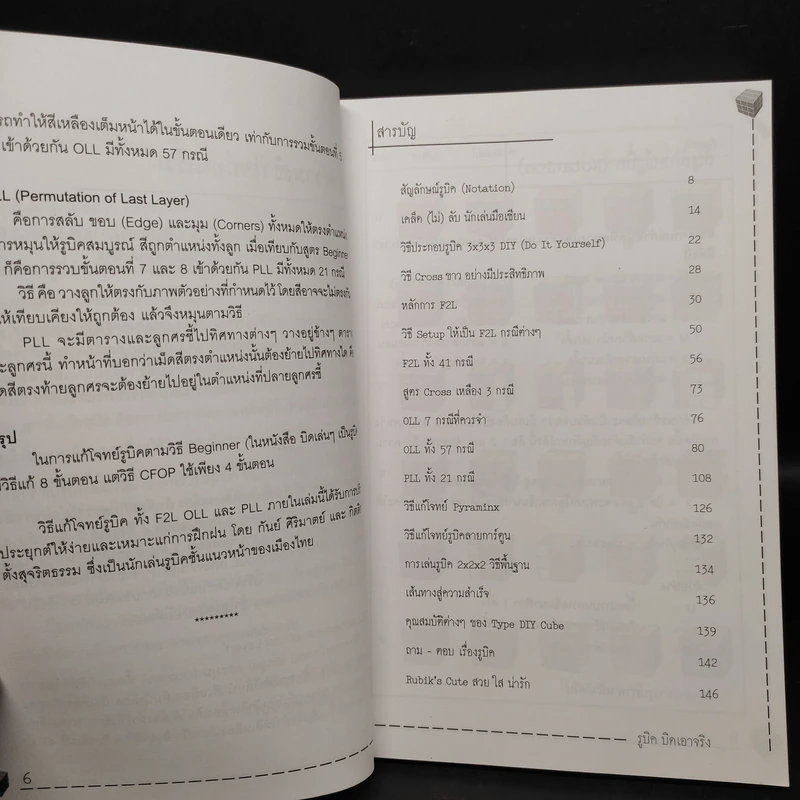 รถทำให้สีเหลืองเต็มหน้าได้ในขั้นตอนเดียว เท่ากับการรวมขั้นตอนที่ 5
เข้าด้วยกัน OLL มีทั้งหมด 57 กรณี
LL (Permutation of Last Layer)
คือการสลับ ขอบ (Edge) และมุม (Corners) ทั้งหมดให้ตรงตำแหน่ง
การหมุนให้รูบิคสมบูรณ์ สีถูกตำแหน่งทั้งลูก เมื่อเทียบกับสูตร Beginner
ก็คือการรวบขั้นตอนที่ 7 และ 8 เข้าด้วยกัน PLL มีทั้งหมด 21 กรณี
วิธี คือ วางลูกให้ตรงกับภาพตัวอย่างที่กำหนดไว้ โดยสีอาจจะไม่ตรงกับ
ให้เทียบเคียงให้ถูกต้อง แล้วจึงหมุนตามวิธี
PLL จะมีตารางและลูกศรชี้ไปทิศทางต่างๆ วางอยู่ข้างๆ ตาราง
ละลูกศรนี้ ทำหน้าที่บอกว่าเม็ดสีตรงตำแหน่งนั้นต้องย้ายไปทิศทางใด คือ
ดสีตรงท้ายลูกศรจะต้องย้ายไปอยู่ในตำแหน่งที่ปลายลูกศรชี้
รุป
ในการแก้โจทย์รูบิคตามวิธี Beginner (ในหนังสือ บิดเล่นๆ เป็นรูบิค
วิธีแก้ 8 ขั้นตอน แต่วิธี CFOP ใช้เพียง 4 ขั้นตอน
วิธีแก้โจทย์รูบิค ทั้ง F2L OLL และ PLL ภายในเล่มนี้ได้รับการ
ประยุกต์ให้ง่ายและเหมาะแก่การฝึกฝน โดย กันย์ ศิริมาตย์ และ
ตั้งสุจริตธรรม ซึ่งเป็นนักเล่นรูบิคชั้นแนวหน้าของเมืองไทย
*********
6
สารบัญ
สัญลักษณ์รูบิค (Notation) 8
เคล็ด (ไม่) ลับ นักเล่นมือเซียน 14
วิธีประกอบรูบิค 3x3x3 DIY (Do It Yourself) 22
วิธี Cross ขาว อย่างมีประสิทธิภาพ 28
หลักการ F2L 30
วิธี Setup ให้เป็น F2L กรณีต่างๆ 50
F2L ทั้ง 41 กรณี 56
สูตร Cross เหลือง 3 กรณี 73
OLL 7 กรณีที่ควรจำ 76
OLL ทั้ง 57 กรณี 80
PLL ทั้ง 21 กรณี 108
วิธีแก้โจทย์ Pyraminx 126
วิธีแก้โจทย์รูบิคลายการ์ตูน 132
การเล่นรูบิค 2x2x2 วิธีพื้นฐาน 134
เส้นทางสู่ความสำเร็จ 136
คุณสมบัติต่างๆ ของ Type DIY Cube 139
ถาม - ตอบ เรื่องรูบิค 142
Rubik's Cute สวย ใส น่ารัก 146
รูบิค บิดเอาจริง